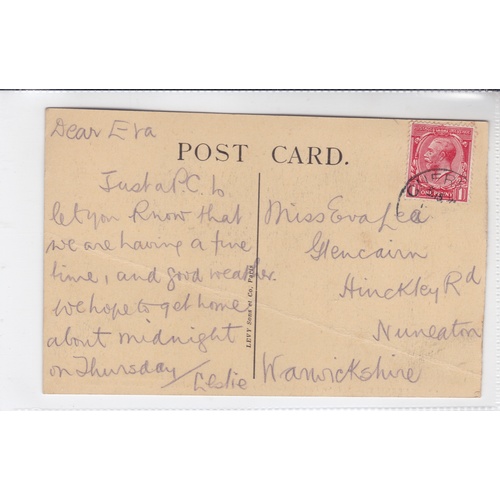 Dear Eva
POST CARD.
Just a P.C. to
let you know that
we are having a fine
time, and good weather.
we hope to get home
about midnight
on Thursday
Leslie
LEVY Sons et Co. Paris
Miss Eva Lea
Glencairn
Hinckley Rd
Nuneaton
Warwickshire
ONE PENNY
1